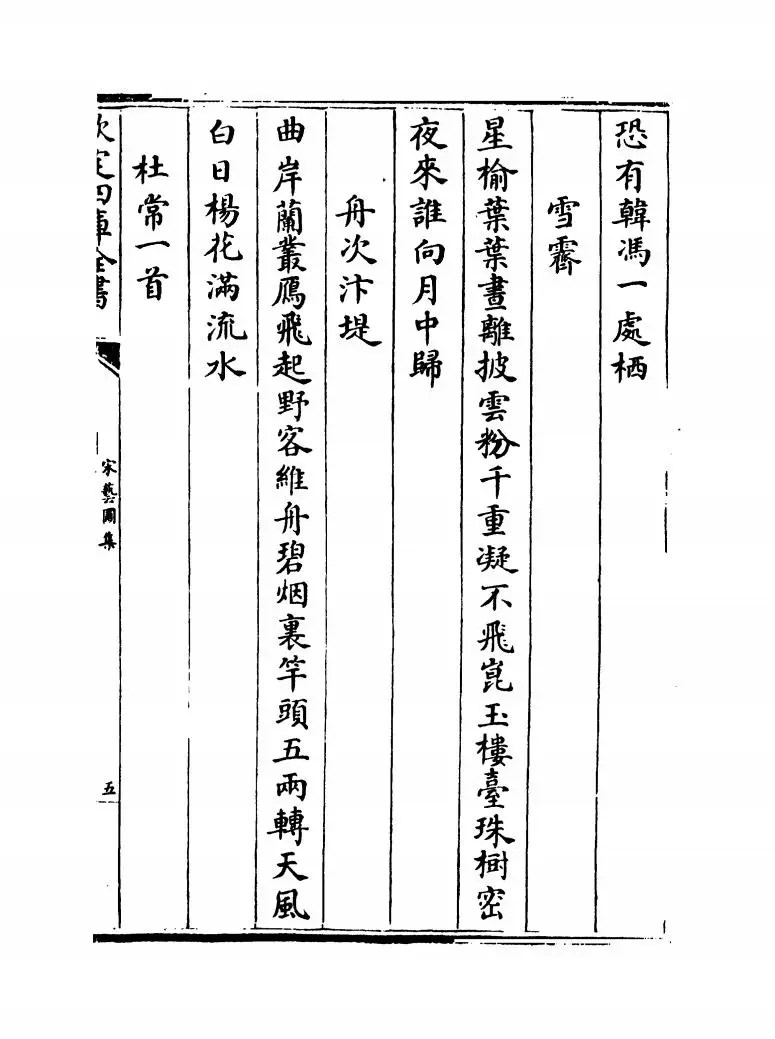 恐有韓馮一處栖
雪霽
星榆葉葉晝離披雲粉千重凝不飛崑玉樓臺珠樹密
夜來誰向月中歸
舟次汴堤
曲岸蘭叢鴈飛起野客維舟碧烟裏竿頭五兩轉天風
白日楊花滿流水
杜常一首
欽定四庫全書
宋藝圃集
五